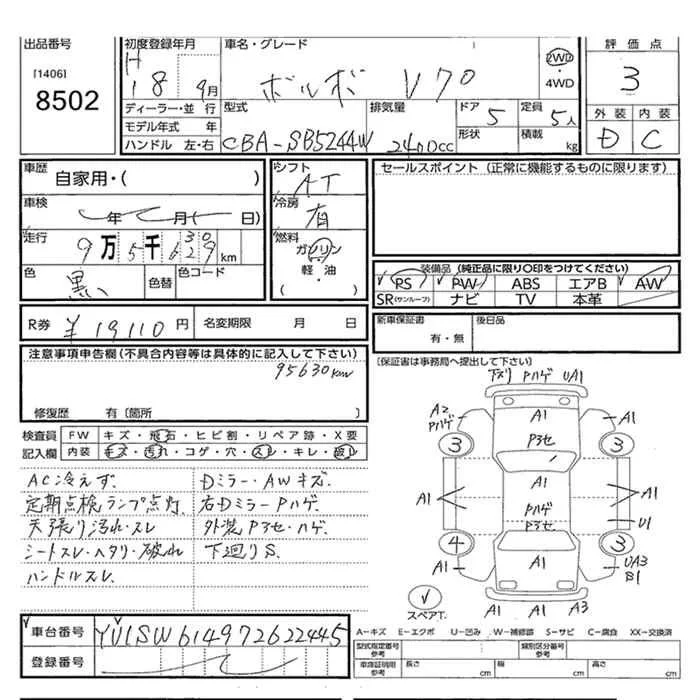 出品番号
[1406]
8502
初度登録年月
H
18年 9月
車名・グレード
ボルボ V70
2WD
・
4WD
評価点
3
外装 内装
D C
ディーラー・並 行
モデル年式 年
ハンドル 左・右
型式
CBA-SB5244W
排気量
2400cc
ドア
5
定員
5人
形状
積載
kg
車歴
自家用・( )
車検
年 月( 日)
走行
30
9万5千629km
色
黒
色替
色コード
シフト
AT
冷房
有
燃料
ガソリン
軽・油
・( )
セールスポイント (正常に機能するものに限ります)
装備品 (純正品に限り○印をつけてください)
PS PW ABS エアB AW
SR(サンルーフ) ナビ TV 本革
R券 ¥19110円 名変期限 月 日
新車保証書
有・無
後日品
〔保証書は事務局へ提出して下さい〕
注意事項申告欄(不具合内容等は具体的に記入して下さい)
95630km
修復歴 有〔箇所 〕
検査員
記入欄
FW キズ・飛石・ヒビ割・リペア跡・X要
内装 キズ・汚れ・コゲ・穴・スレ・キレ・破レ
AC冷えず.
定期点検ランプ点灯.
天張り汚れ・スレ
シートスレ・ヘタリ・破れ
ハンドルスレ.
Dミラー・AWキズ.
右DミラーPハゲ.
外装Pヨセ・ハゲ.
下廻りS.
下ズリ Pハゲ UA1
A2
Pハゲ
A1
A1
Pヨセ
3
3
A1
A1
A1
Pハゲ
Pヨセ
U1
4
3
A1
A1
UA3
B1
A1 A1 A3
スペアT.
A-キズ E-エクボ U-凹み W-補修跡 S-サビ C-腐食 XX-交換済
車台番号
YV1SW614972622445
登録番号
型式指定番号
参考
類別区分番号
参考
車庫証明用
参考
長さ
cm
幅
cm
高さ
cm